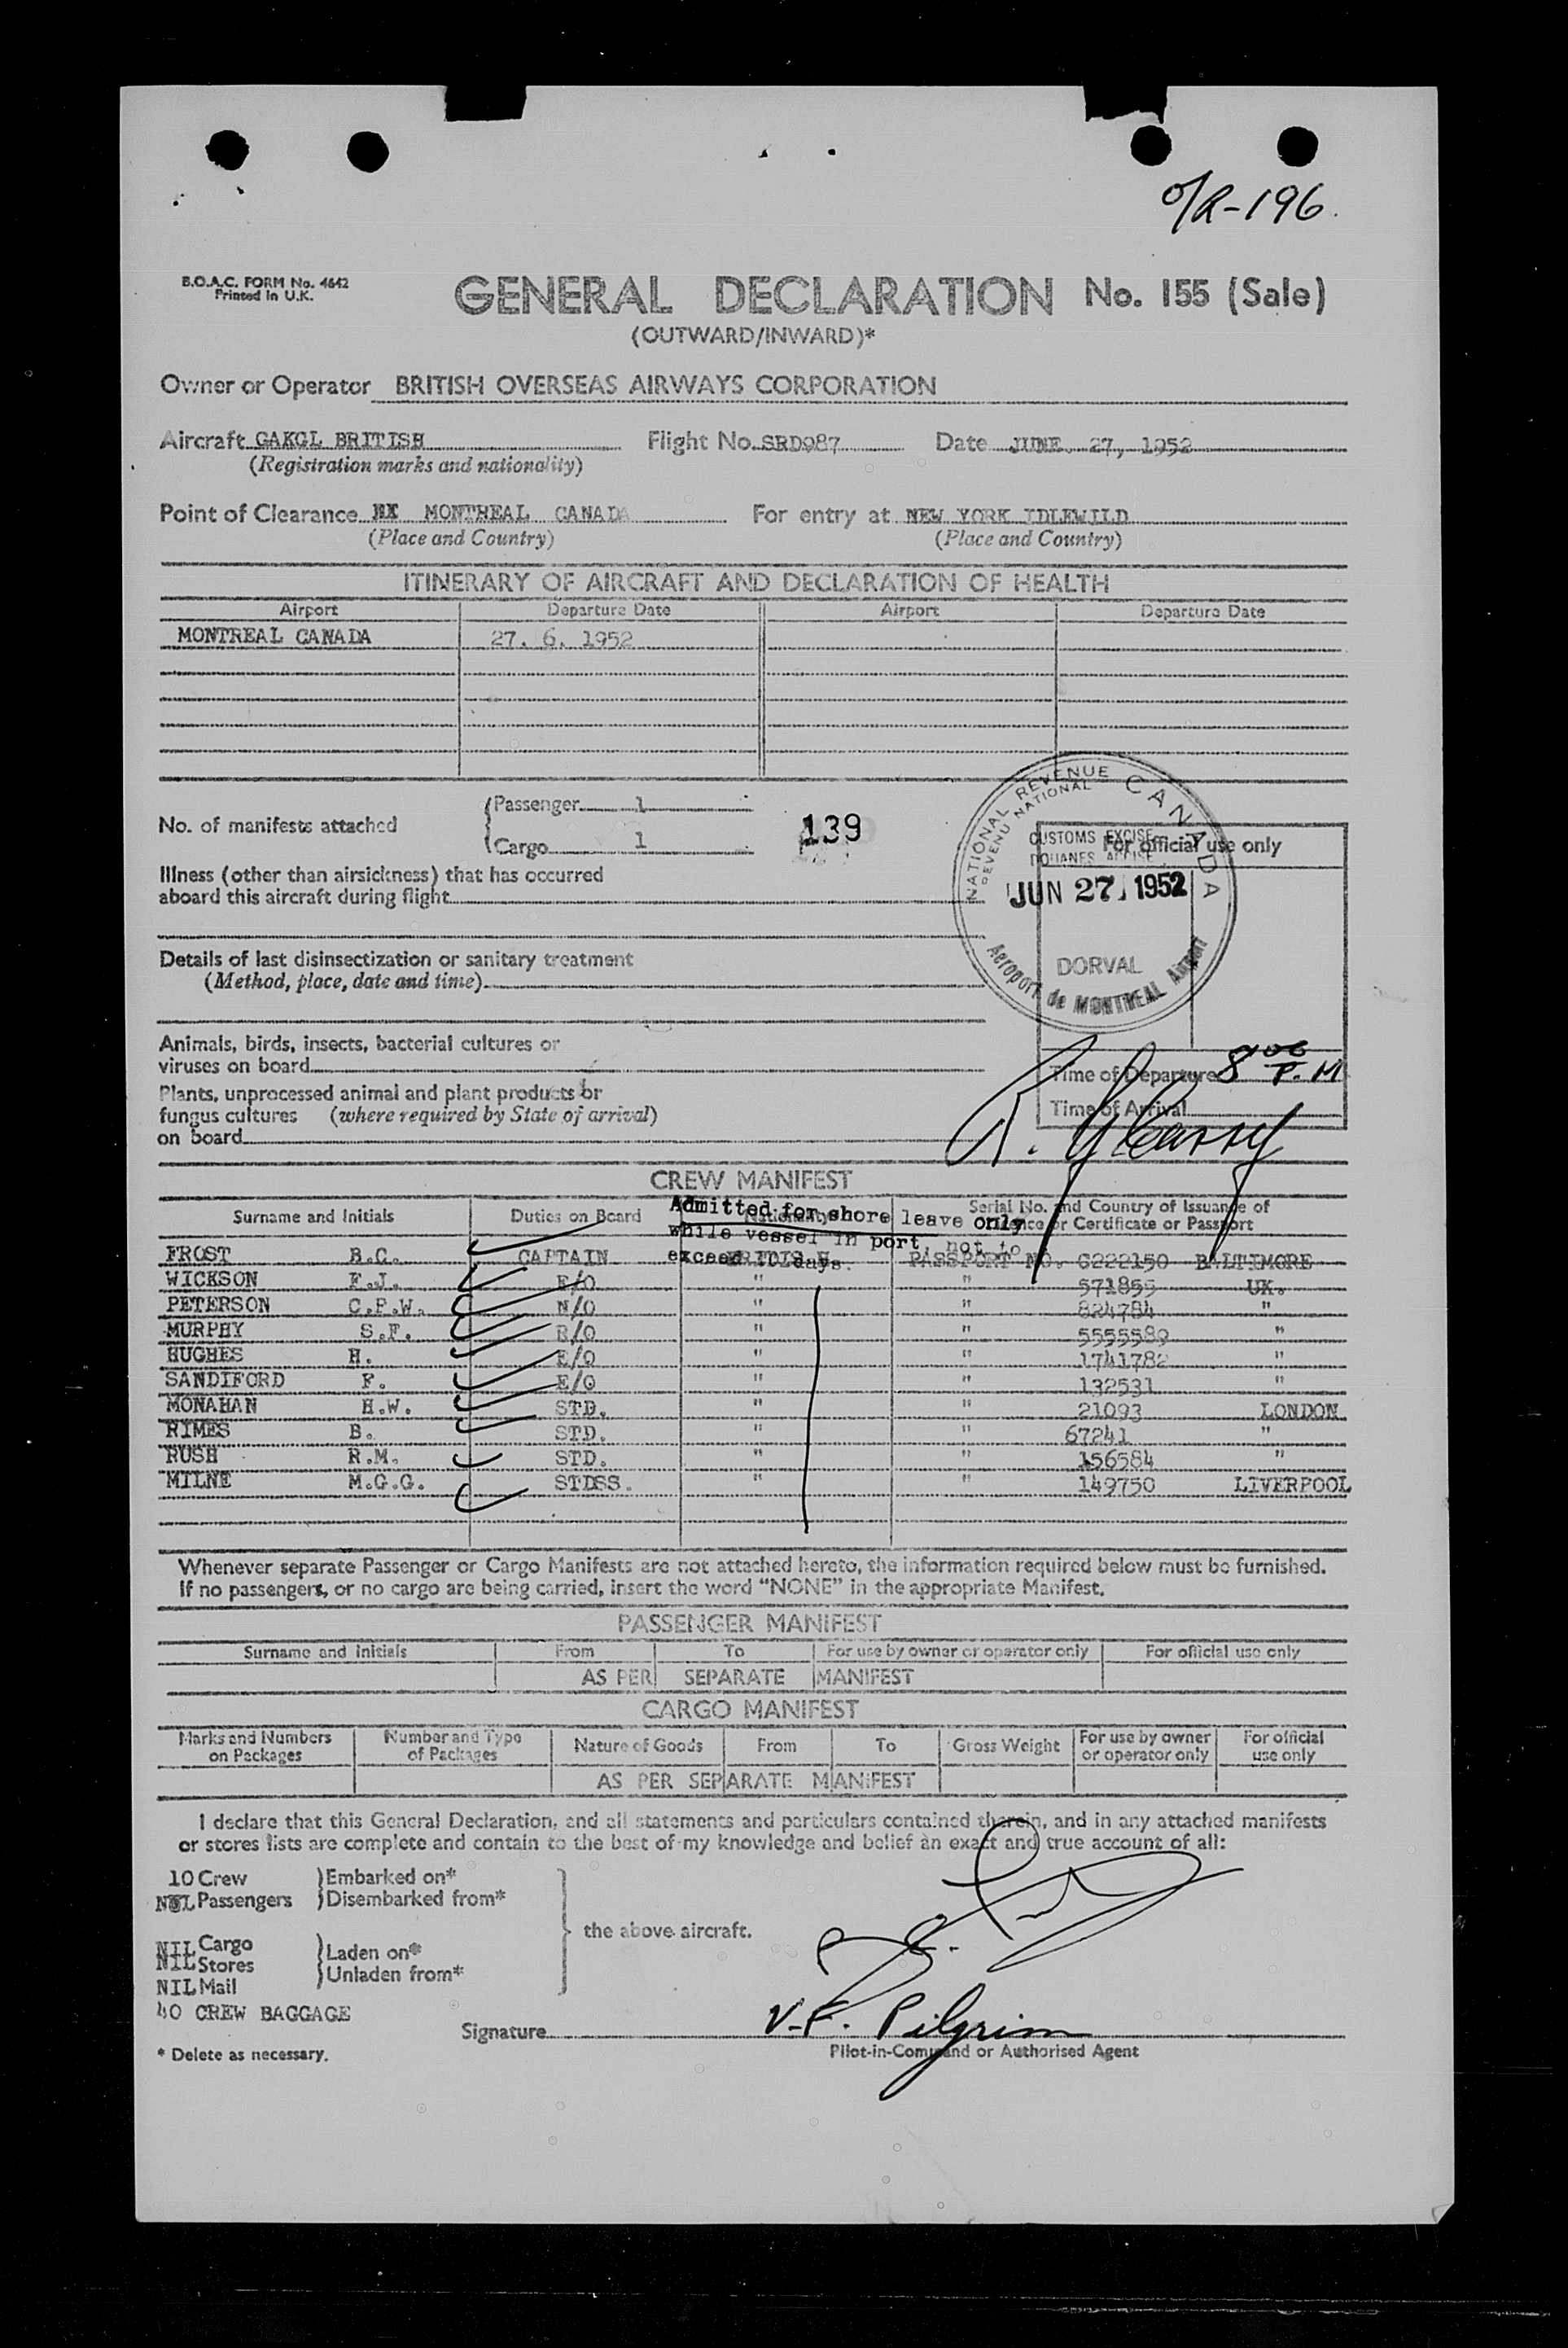 O/R-196.
B.O.A.C. FORM No. 4642
Printed in U.K.
GENERAL DECLARATION No. 155 (Sale)
(OUTWARD/INWARD)*
Owner or Operator BRITISH OVERSEAS AIRWAYS CORPORATION
Aircraft GAKGL BRITISH Flight No. SRD987 Date JUNE. 27, 1952
(Registration marks and nationality)
Point of Clearance MONTREAL CANADA For entry at NEW YORK IDLEWILD
(Place and Country) (Place and Country)
ITINERARY OF AIRCRAFT AND DECLARATION OF HEALTH
Airport Departure Date Airport Departure Date
MONTREAL CANADA 27. 6. 1952
No. of manifests attached
Passenger 1
Cargo 1
139
NATIONAL REVENUE CANADA
REVENU NATIONAL
CUSTOMS EXCISE
DOUANES ACCISE
JUN 27 1952
DORVAL
Aéroport de MONTREAL Airport
For official use only
Illness (other than airsickness) that has occurred
aboard this aircraft during flight
Details of last disinsectization or sanitary treatment
(Method, place, date and time)
Animals, birds, insects, bacterial cultures or
viruses on board
Time of Departure 8 00 P.M
Plants, unprocessed animal and plant products or
fungus cultures (where required by State of arrival)
on board
Time of Arrival
CREW MANIFEST
Surname and Initials Duties on Board Nationality Serial No. and Country of Issuance of
Licence or Certificate or Passport
Admitted for shore leave only
while vessel in port, not to
exceed 10 days.
FROST B.C. CAPTAIN BRITISH PASSPORT NO. C222150 BALTIMORE
WICKSON F.J. F/O " " 571855 UK.
PETERSON C.P.W. N/O " " 824784 "
MURPHY S.F. R/O " " 5555589 "
HUGHES H. E/O " " 1741782 "
SANDIFORD F. E/O " " 132531 "
MONAHAN H.W. STD. " " 21093 LONDON
RIMES B. STD. " " 67241 "
RUSH R.M. STD. " " 156584 "
MILNE M.G.G. STDSS. " " 149750 LIVERPOOL
Whenever separate Passenger or Cargo Manifests are not attached hereto, the information required below must be furnished.
If no passengers, or no cargo are being carried, insert the word "NONE" in the appropriate Manifest.
PASSENGER MANIFEST
Surname and Initials From To For use by owner or operator only For official use only
AS PER SEPARATE MANIFEST
CARGO MANIFEST
Marks and Numbers on Packages Number and Type of Packages Nature of Goods From To Gross Weight For use by owner or operator only For official use only
AS PER SEPARATE MANIFEST
I declare that this General Declaration, and all statements and particulars contained therein, and in any attached manifests
or stores lists are complete and contain to the best of my knowledge and belief an exact and true account of all:
10 Crew Embarked on*
NIL Passengers Disembarked from*
the above aircraft.
NIL Cargo Laden on*
NIL Stores Unladen from*
NIL Mail
40 CREW BAGGAGE
Signature V.F. Pilgrim
Pilot-in-Command or Authorised Agent
* Delete as necessary.